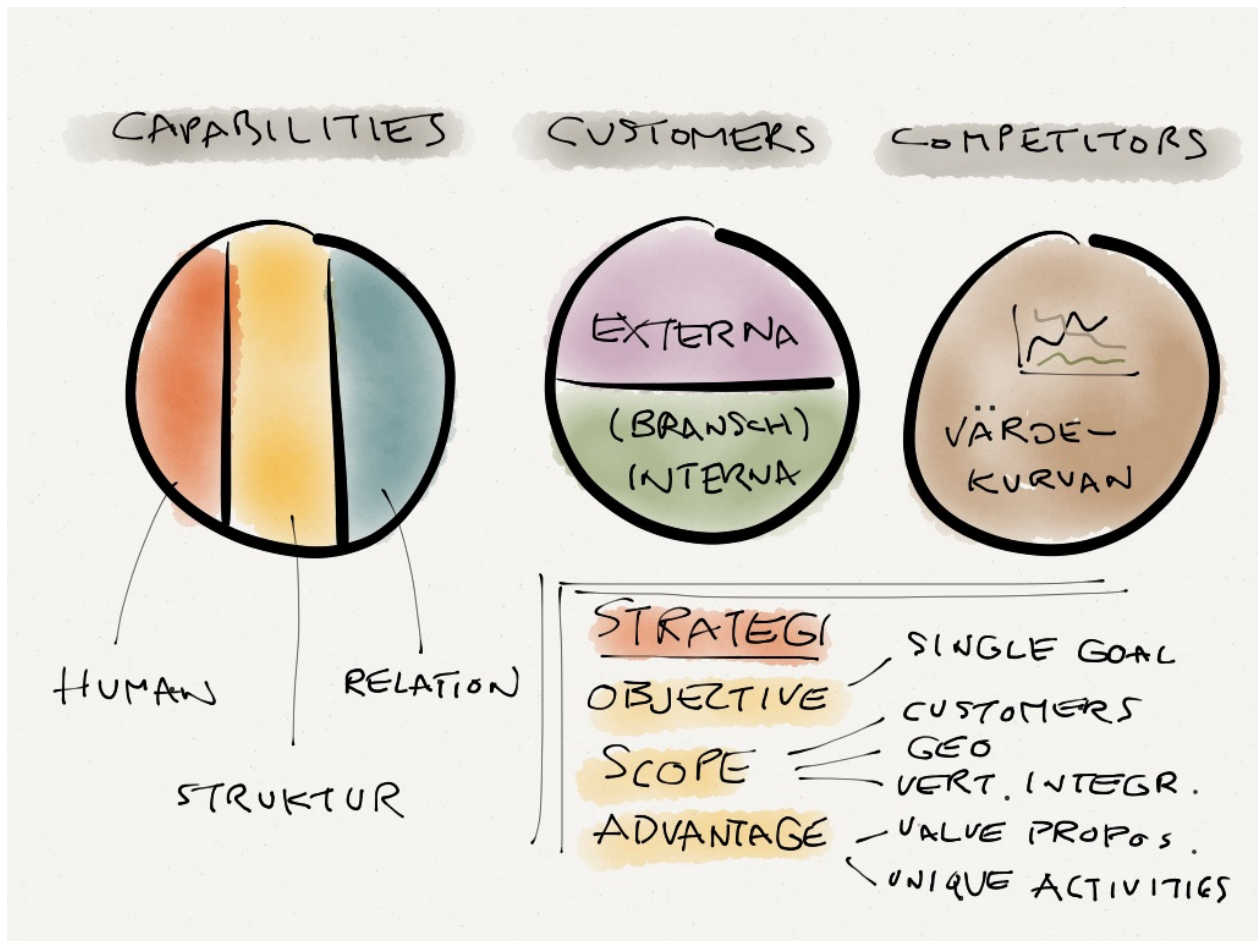 CAPABILITIES
CUSTOMERS
COMPETITORS
EXTERNA
(BRANSCH)
INTERNA
VÄRDE-
KURVAN
HUMAN
STRUKTUR
RELATION
STRATEGI
OBJECTIVE
SINGLE GOAL
SCOPE
CUSTOMERS
GEO
VERT. INTEGR.
ADVANTAGE
VALUE PROPOS.
UNIQUE ACTIVITIES